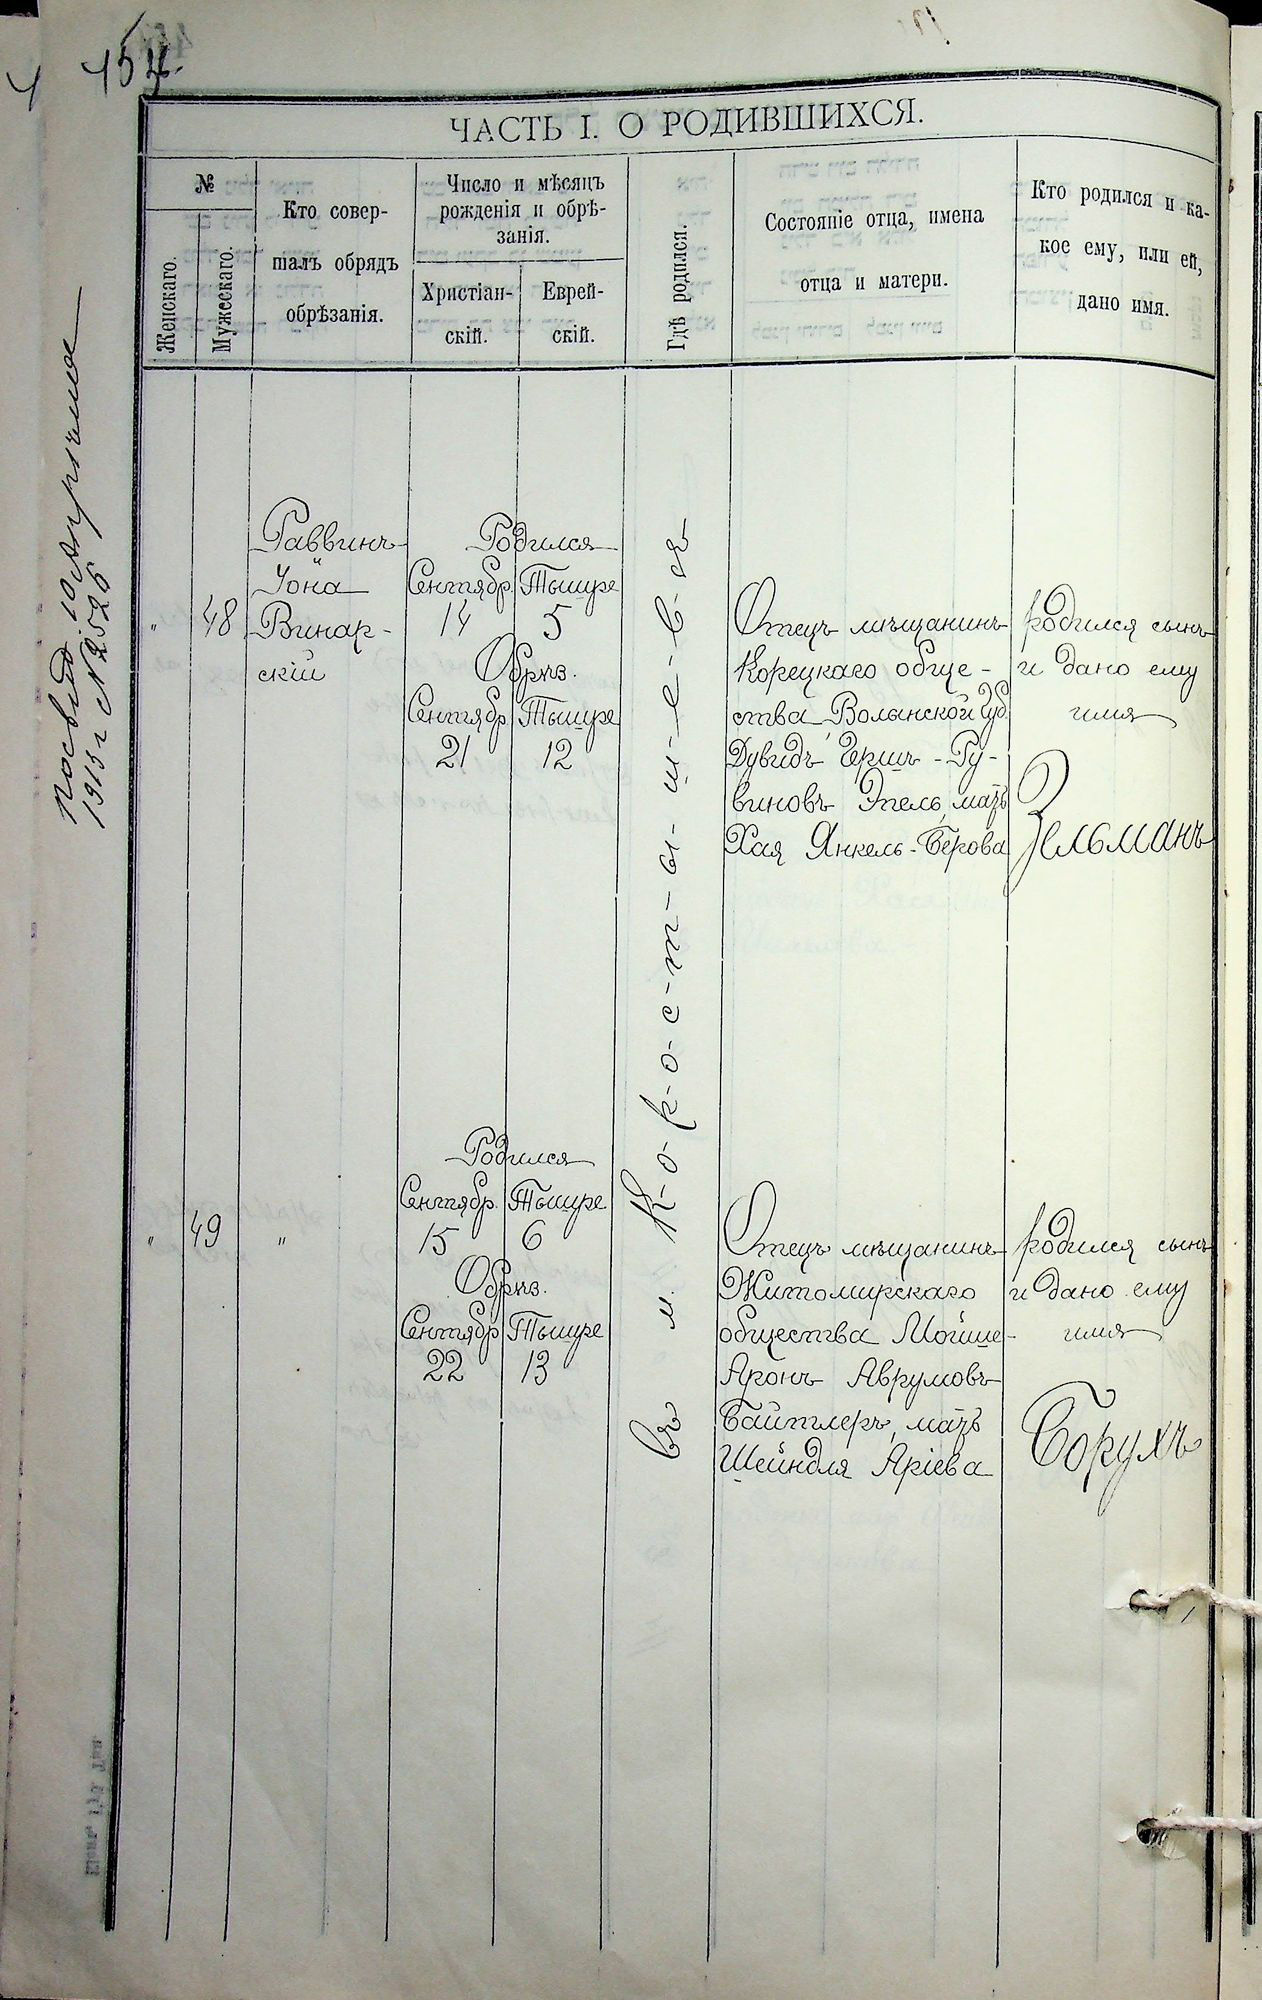 154.
ЧАСТЬ I. О РОДИВШИХСЯ.
№
Женскаго.
Мужескаго.
Кто совер-
шалъ обрядъ
обрѣзанія.
Число и мѣсяцъ
рожденія и обрѣ-
занія.
Христіан-
скій.
Еврей-
скій.
Гдѣ родился.
Состояніе отца, имена
отца и матери.
Кто родился и ка-
кое ему, или ей,
дано имя.
1913 г №2526
"
48
Раввинъ
Іона
Винар-
скій
Родился
Сентябр. Тышре
14 5
Обрѣз.
Сентябр Тышре
21 12
въ м. К-о-р-о-с-т-ы-ш-е-в-ѣ
Отецъ мѣщанинъ
Корецкаго обще-
ства Волынской Губ.
Дувидъ Гершъ-Ру-
виновъ Эпель, мать
Хая Янкель-Берова
родился сынъ
и дано ему
имя
Зельманъ
"
49
"
Родился
Сентябр. Тышре
15 6
Обрѣз.
Сентябр Тышре
22 13
Отецъ мѣщанинъ
Житомирскаго
общества Мойше-
Аронъ Аврумовъ
Байтлеръ, мать
Шейндля Аріева
родился сынъ
и дано ему
имя
Борухъ